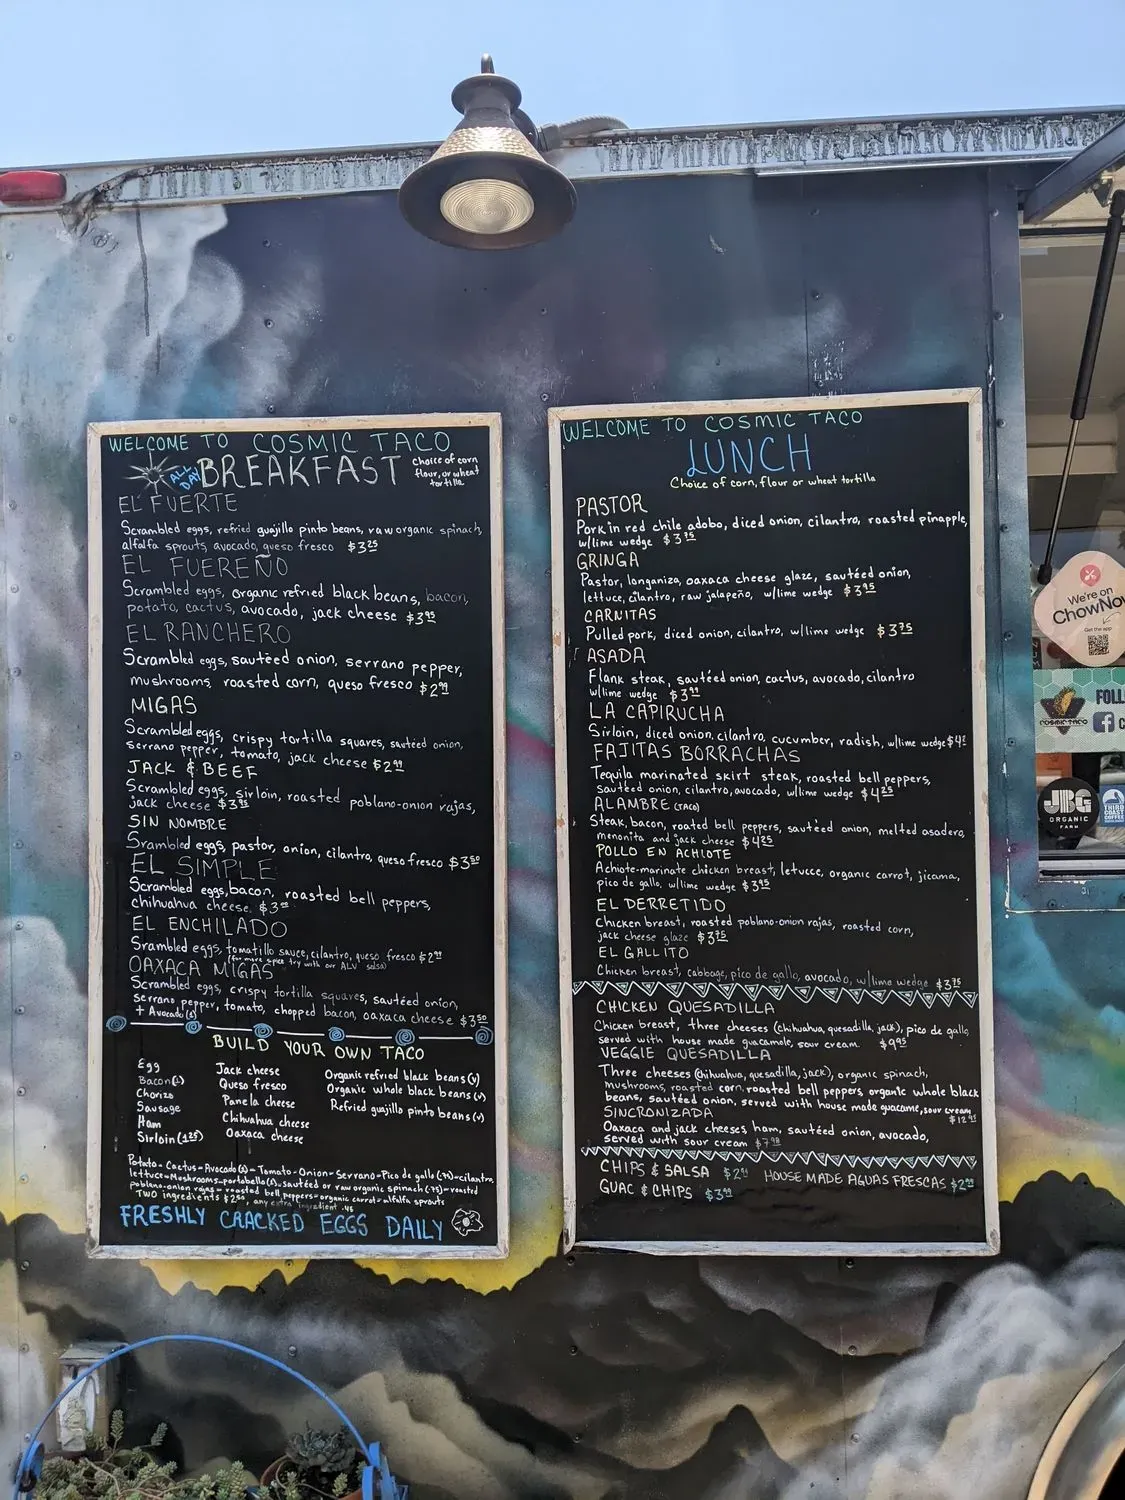 WELCOME TO COSMIC TACO
ALL DAY BREAKFAST
Choice of corn
flour, or wheat
tortilla
EL FUERTE
Scrambled eggs, refried guajillo pinto beans, raw organic spinach,
alfalfa sprouts, avocado, queso fresco $3.25
EL FUEREÑO
Scrambled eggs, organic refried black beans, bacon,
potato, cactus, avocado, jack cheese $3.95
EL RANCHERO
Scrambled eggs, sautéed onion, serrano pepper,
mushrooms, roasted corn, queso fresco $2.99
MIGAS
Scrambled eggs, crispy tortilla squares, sautéed onion,
serrano pepper, tomato, jack cheese $2.99
JACK & BEEF
Scrambled eggs, sirloin, roasted poblano-onion rajas,
jack cheese $3.95
SIN NOMBRE
Srambled eggs, pastor, onion, cilantro, queso fresco $3.50
EL SIMPLE
Scrambled eggs, bacon, roasted bell peppers,
chihuahua cheese.
EL ENCHILADO
Srambled eggs, tomatillo sauce, cilantro, queso fresco $2.99
(for more spice try with our ALV salsa)
OAXACA MIGAS
Scrambled eggs, crispy tortilla squares, sautéed onion,
serrano pepper, tomato, chopped bacon, oaxaca cheese $3.50
+ Avocado (1)
BUILD YOUR OWN TACO
Egg
Bacon (1)
Chorizo
Sausage
Ham
Sirloin (1.25)
Jack cheese
Queso fresco
Panela cheese
Chihuahua cheese
Oaxaca cheese
Organic refried black beans (v)
Organic whole black beans (v)
Refried guajillo pinto beans (v)
Potato - Cactus - Avocado - Tomato - Onion - Serrano - Pico de gallo (.75) - cilantro,
lettuce - Mushrooms - portobella (1), sautéed or raw organic spinach (.75) - roasted
poblano-onion rajas - roasted bell peppers - organic carrot - alfalfa sprouts
TWO ingredients $2.50, any extra ingredient
FRESHLY CRACKED EGGS DAILY
WELCOME TO COSMIC TACO
LUNCH
Choice of corn, flour or wheat tortilla
PASTOR
Pork in red chile adobo, diced onion, cilantro, roasted pineapple,
w/lime wedge $3.75
GRINGA
Pastor, longaniza, oaxaca cheese glaze, sautéed onion,
lettuce, cilantro, raw jalapeño, w/lime wedge $3.95
CARNITAS
Pulled pork, diced onion, cilantro, w/lime wedge $3.75
ASADA
Flank steak, sautéed onion, cactus, avocado, cilantro
w/lime wedge $3.99
LA CAPIRUCHA
Sirloin, diced onion, cilantro, cucumber, radish, w/lime wedge
FAJITAS BORRACHAS
Tequila marinated skirt steak, roasted bell peppers,
sautéed onion, cilantro, avocado, w/lime wedge $4.25
ALAMBRE (TACO)
Steak, bacon, roated bell peppers, sautéed onion, melted asadero,
menonita and jack cheese $4.25
POLLO EN ACHIOTE
Achiote-marinate chicken breast, letucce, organic carrot, jicama,
pico de gallo, w/lime wedge $3.95
EL DERRETIDO
Chicken breast, roasted poblano-onion rajas, roasted corn,
jack cheese glaze $3.75
EL GALLITO
Chicken breast, cabbage, pico de gallo, avocado, w/lime wedge $3.75
CHICKEN QUESADILLA
Chicken breast, three cheeses (chihuahua, quesadilla, jack), pico de gallo
served with house made guacamole, sour cream $9.95
VEGGIE QUESADILLA
Three cheeses (chihuahua, quesadilla, jack), organic spinach,
mushrooms, roasted corn, roasted bell peppers, organic whole black
beans, sautéed onion, served with house made guacame, sour cream
$12.95
SINCRONIZADA
Oaxaca and jack cheeses ham, sautéed onion, avocado,
served with sour cream
CHIPS & SALSA HOUSE MADE AGUAS FRESCAS $2.99
GUAC & CHIPS $3.99
We're on
ChowNo
Get the app
COSMIC TACO
FOLL
JBG
ORGANIC
FARM
THIRD
COAST
COFFEE